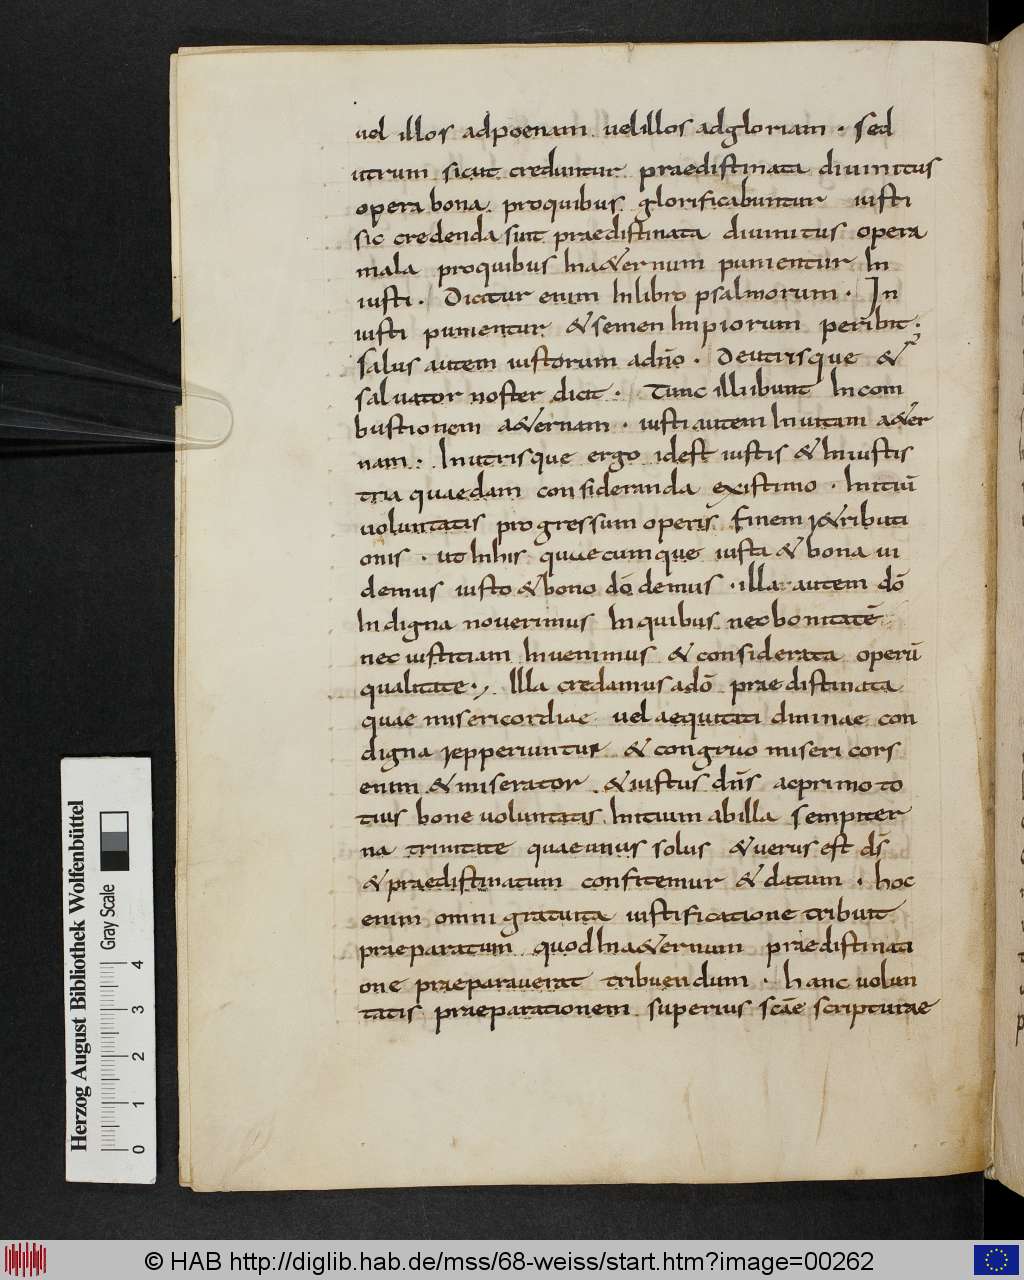 vel illos adpoenam. vel illos adgloriam. Sed
utrum sicut creduntur praedistinata divinitus
opera bona. proquibus glorificabuntur iusti
sic credenda sunt praedistinata divinitus opera
mala proquibus In&ernum punientur In
iusti. Dicitur enim Inlibro psalmorum. In
iusti punientur & semen Impiorum peribit.
Salus autem iustorum adnō. Deutrisque &
salvator noster dicit. Tunc illi ibunt Incom
bustionem a&ernam. iusti autem Invitam a&er
nam. Inutrisque ergo idest iustis & Iniustis
tria quaedam consideranda existimo. Initiū
voluntatis progressum operis finem r&ributi
onis. ut Inhis quaecumque iusta & bona vi
demus iusto & bono dō demus. illa autem dō
Indigna noverimus Inquibus nec bonitatē
nec iustitiam Invenimus & considerata operū
qualitate. Illa credamus adō praedistinata
quae misericordiae vel aequitati divinae con
digna repperiuntur & congruo misericors
enim & miserator. & iustus dn̄s acprimo to
tius bone voluntatis Initium abilla sempiter
na trinitate quae unus solus & verus est ds̄
& praedistinatum confitemur & datum. hoc
enim omni gratuita iustificatione tribuit
praeparatum quod Ina&ernum praedistinati
one praeparaverat tribuendum. hanc volun
tatis praeparationem superius scāe scripturae
Herzog August Bibliothek Wolfenbüttel
Gray Scale
0 1 2 3 4
© HAB http://diglib.hab.de/mss/68-weiss/start.htm?image=00262